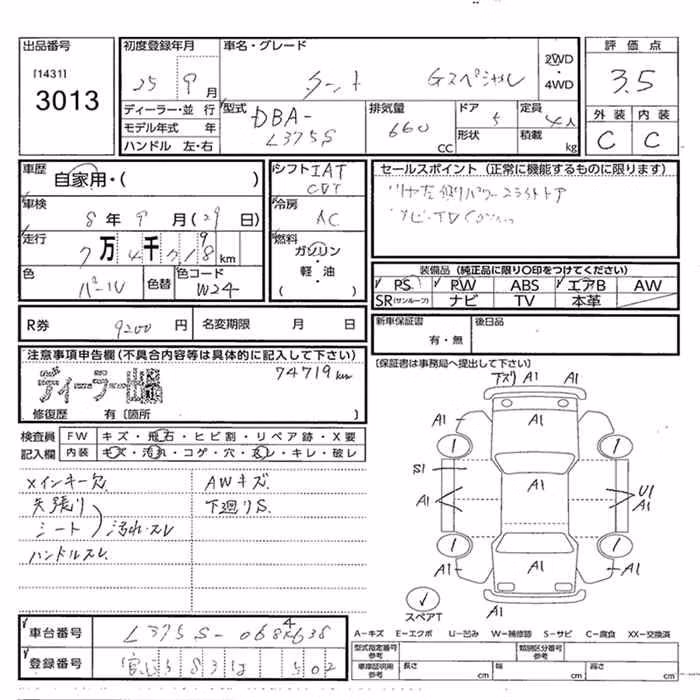 出品番号
[1431]
3013
初度登録年月
25年9月
車名・グレード
タント Gスペシャル
2WD
・
4WD
評価点
3.5
外装 内装
C C
ディーラー・並 行
モデル年式 年
ハンドル 左・右
型式 DBA-
L375S
排気量
660 CC
ドア 5
形状
定員 4人
積載 kg
車歴
自家用・( )
シフト IAT
車検
8年9月(29日)
冷房
AC
走行
7万4千718km
9
燃料
ガソリン
・
軽・油
( )
色
パール
色替
色コード
W24
セールスポイント (正常に機能するものに限ります)
装備品 (純正品に限り〇印をつけてください)
PS PW ABS エアB AW
SR(サンルーフ) ナビ TV 本革
R券 9200円
名変期限 月 日
新車保証書
有・無
後日品
[保証書は事務局へ提出して下さい)
注意事項申告欄(不具合内容等は具体的に記入して下さい)
74719km
ディーラー出品
修復歴 有〔箇所 〕
検査員
記入欄
FW キズ・飛石・ヒビ割・リペア跡・X要
内装 キズ・汚れ・コゲ・穴・スレ・キレ・破レ
Xインキー欠
天張り
シート
汚れ・スレ
ハンドルスレ
AWキズ
下廻りS
下ズリ A1 A1
A1 A1 A1
S1
A1 A1 U1
A1
A1 A1 A1
スペアT
車台番号 L375S-0684638
登録番号 583 502
A−キズ E−エクボ U−凹み W−補修跡 S−サビ C−腐食 XX−交換済
型式指定番号
参考
類別区分番号
参考
車庫証明用
参考
長さ cm
幅 cm
高さ cm